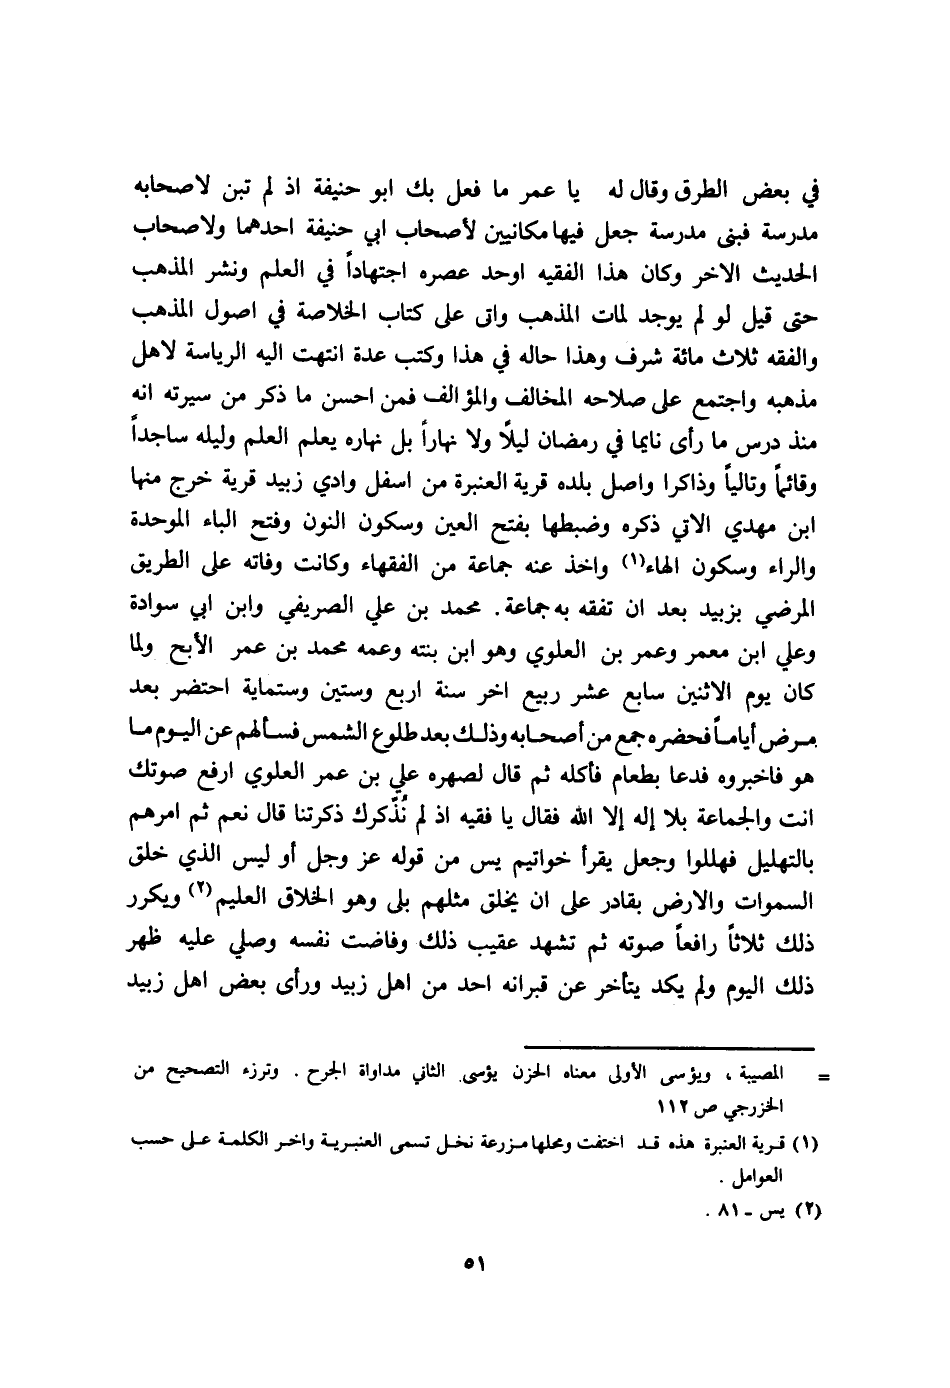 في بعض الطرق وقال له يا عمر ما فعل بك ابو حنيفة اذ لم تبن لاصحابه
مدرسة فبنى مدرسة جعل فيها مكانيين لأصحاب ابي حنيفة احدهما ولاصحاب
الحديث الاخر وكان هذا الفقيه اوحد عصره اجتهاداً في العلم ونشر المذهب
حتى قيل لو لم يوجد لمات المذهب واتى على كتاب الخلاصة في اصول المذهب
والفقه ثلاث مائة شرف وهذا حاله في هذا وكتب عدة انتهت اليه الرياسة لاهل
مذهبه واجتمع على صلاحه المخالف والمؤالف فمن احسن ما ذكر من سيرته انه
منذ درس ما رأى نايما في رمضان ليلًا ولا نهاراً بل نهاره يعلم العلم وليله ساجداً
وقائماً وتالياً وذاكرا واصل بلده قرية العنبرة من اسفل وادي زبيد قرية خرج منها
ابن مهدي الاتي ذكره وضبطها بفتح العين وسكون النون وفتح الباء الموحدة
والراء وسكون الهاء(١) واخذ عنه جماعة من الفقهاء وكانت وفاته على الطريق
المرضي بزبيد بعد ان تفقه به جماعة . محمد بن علي الصريفي وابن ابي سوادة
وعلي ابن معمر وعمر بن العلوي وهو ابن بنته وعمه محمد بن عمر الأبح ولما
كان يوم الاثنين سابع عشر ربيع اخر سنة اربع وستين وستماية احتضر بعد
مرض أياماً فحضره جمع من أصحابه وذلك بعد طلوع الشمس فسألهم عن اليوم ما
هو فاخبروه فدعا بطعام فأكله ثم قال لصهره علي بن عمر العلوي ارفع صوتك
انت والجماعة بلا إله إلا الله فقال يا فقيه اذ لم نُذّكرك ذكرتنا قال نعم ثم امرهم
بالتهليل فهللوا وجعل يقرأ خواتيم يس من قوله عز وجل أو ليس الذي خلق
السموات والارض بقادر على ان يخلق مثلهم بلى وهو الخلاق العليم(٢) ويكرر
ذلك ثلاثاً رافعاً صوته ثم تشهد عقيب ذلك وفاضت نفسه وصلي عليه ظهر
ذلك اليوم ولم يكد يتأخر عن قبرانه احد من اهل زبيد ورأى بعض اهل زبيد
= المصيبة ، ويؤسى الأولى معناه الحزن يؤسى الثاني مداواة الجرح . وترزء التصحيح من
الخزرجي ص ١١٢
(١) قرية العنبرة هذه قد اختفت ومحلها مزرعة نخل تسمى العنبرية واخر الكلمة على حسب
العوامل .
(٢) يس - ٨١ .
٥١